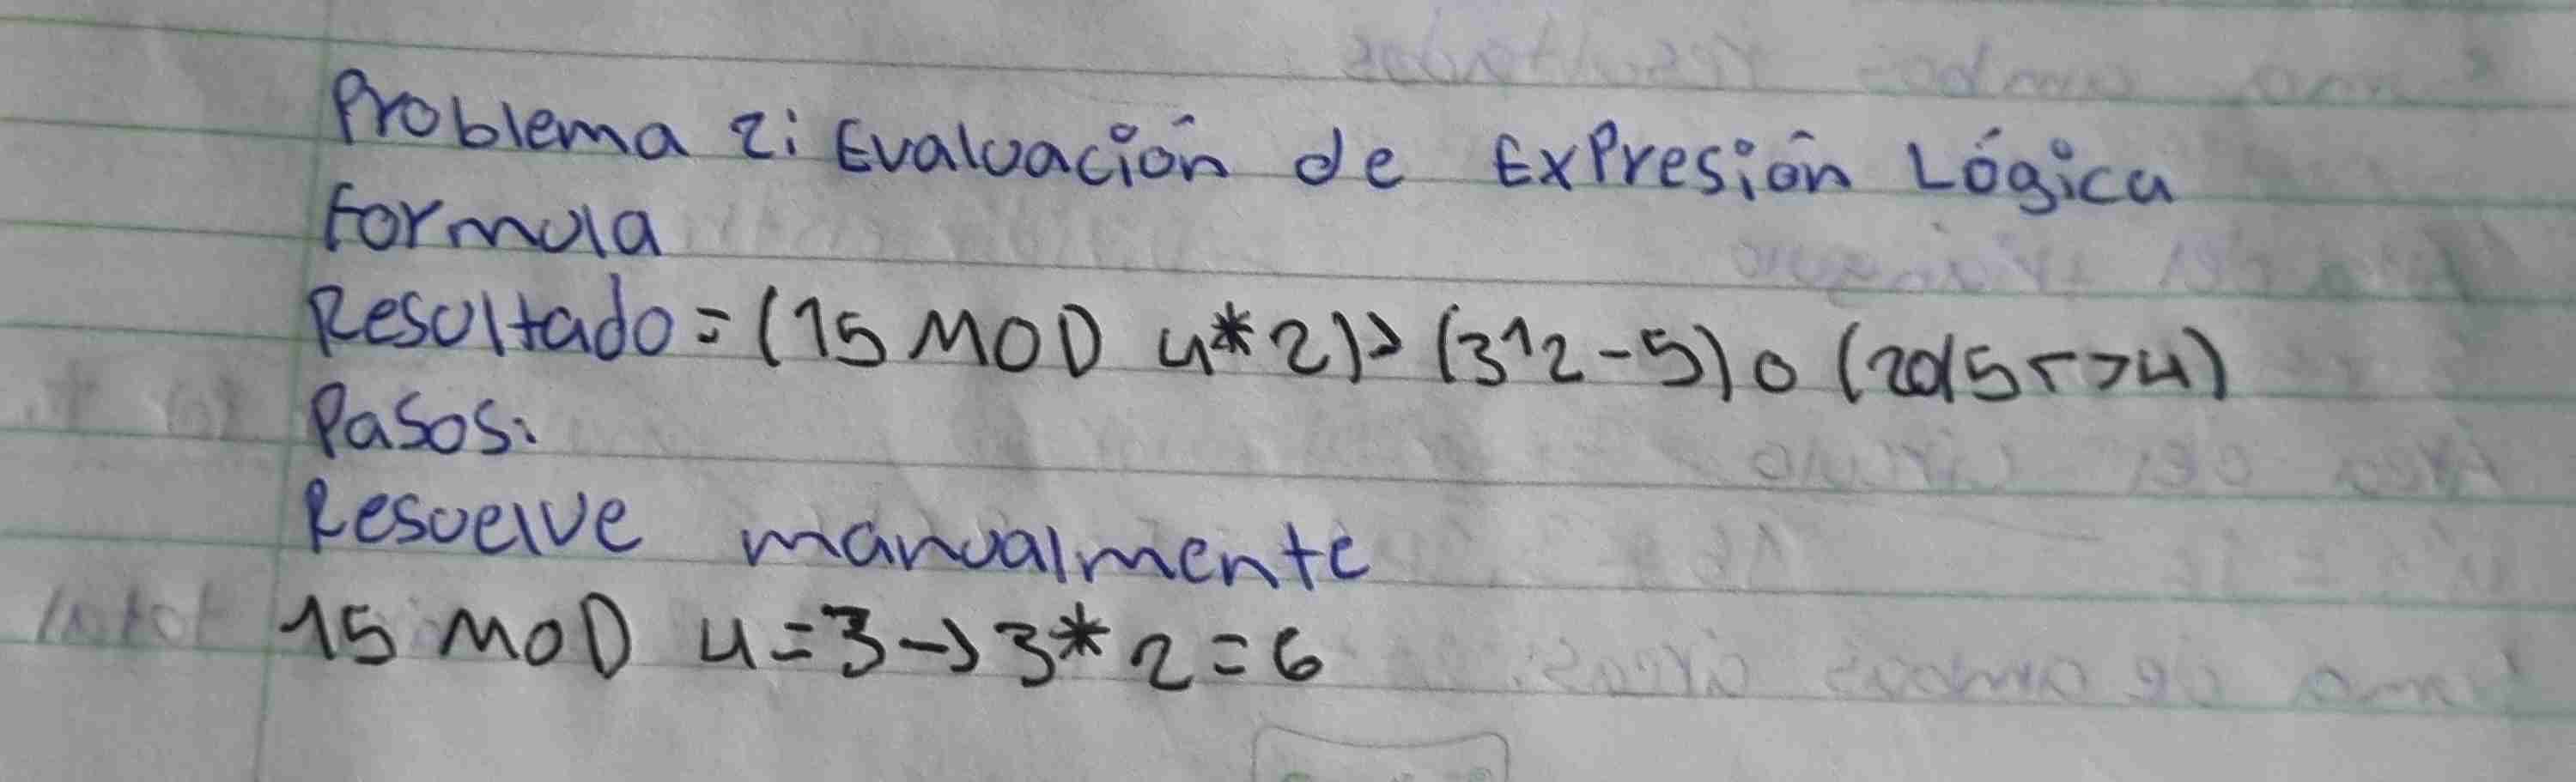 Problema 2: Evaluación de Expresión Lógica
Formula
Resultado = (15 MOD 4*2) > (3^2-5) o (20/5 <> 4)
Pasos:
Resuelve manualmente
15 MOD 4 = 3 -> 3*2 = 6